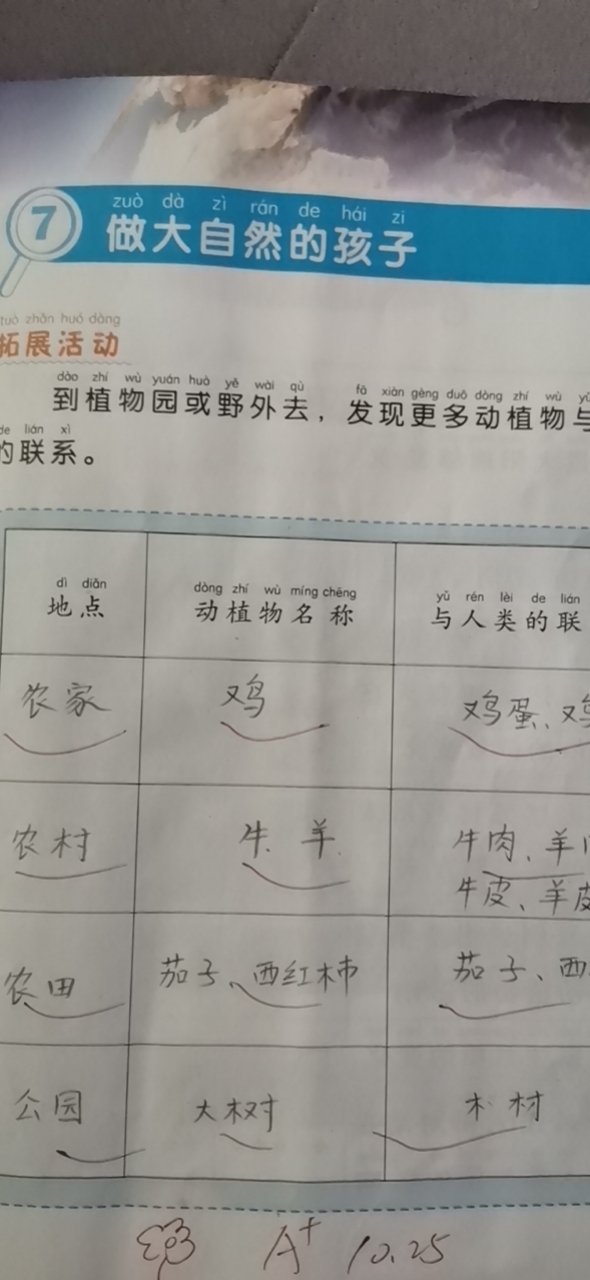 7
zuò dà zì rán de hái zi
做大自然的孩子
tuò zhǎn huó dòng
拓展活动
dào zhí wù yuán huò yě wài qù fā xiàn gèng duō dòng zhí wù yǔ
到植物园或野外去，发现更多动植物与
de lián xì
的联系。
dì diǎn dòng zhí wù míng chēng yǔ rén lèi de lián
地点 动植物名称 与人类的联
农家 鸡 鸡蛋、鸡
农村 牛、羊 牛肉、羊
牛皮、羊皮
农田 茄子、西红柿 茄子、西
公园 大树 木材
A+ 10.25